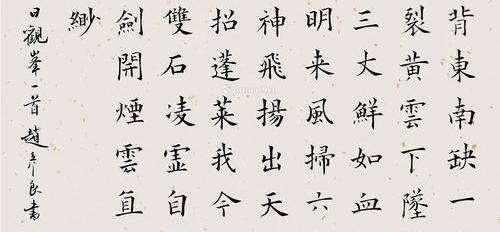 背東南缺一
裂黃雲下墜
三丈鮮如血
明来風掃六
神飛揚出天
招蓬萊我今
雙石凌虛自
劍開煙雲直
緲
日觀峯一首趙彥良書